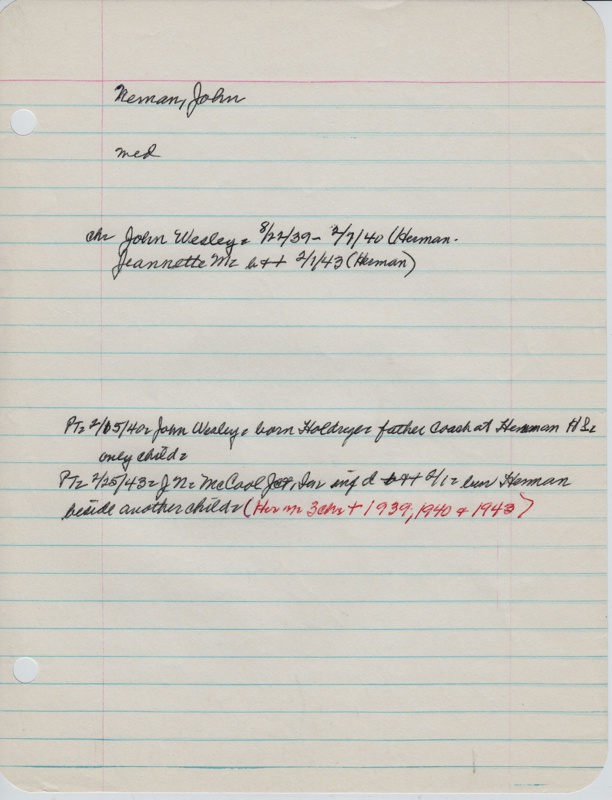 Neman, John
med
ch= John Wesley= 8/22/39- 2/7/40 (Herman.
Jeannette M= b++ 2/1/43 (Herman)
PT= 2/15/40= John Wesley= born Holdrege= father Coach at Herman HS=
only child=
PT= 2/25/43= J N= McCool Jct, In= inf d b++ 2/1= bur Herman
beside another child= (Her M= 3 ch= + 1939, 1940 & 1943)